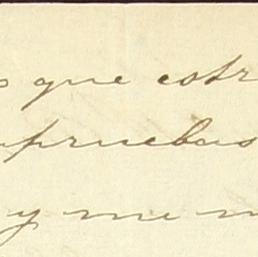 que estr
pruebas
y me m